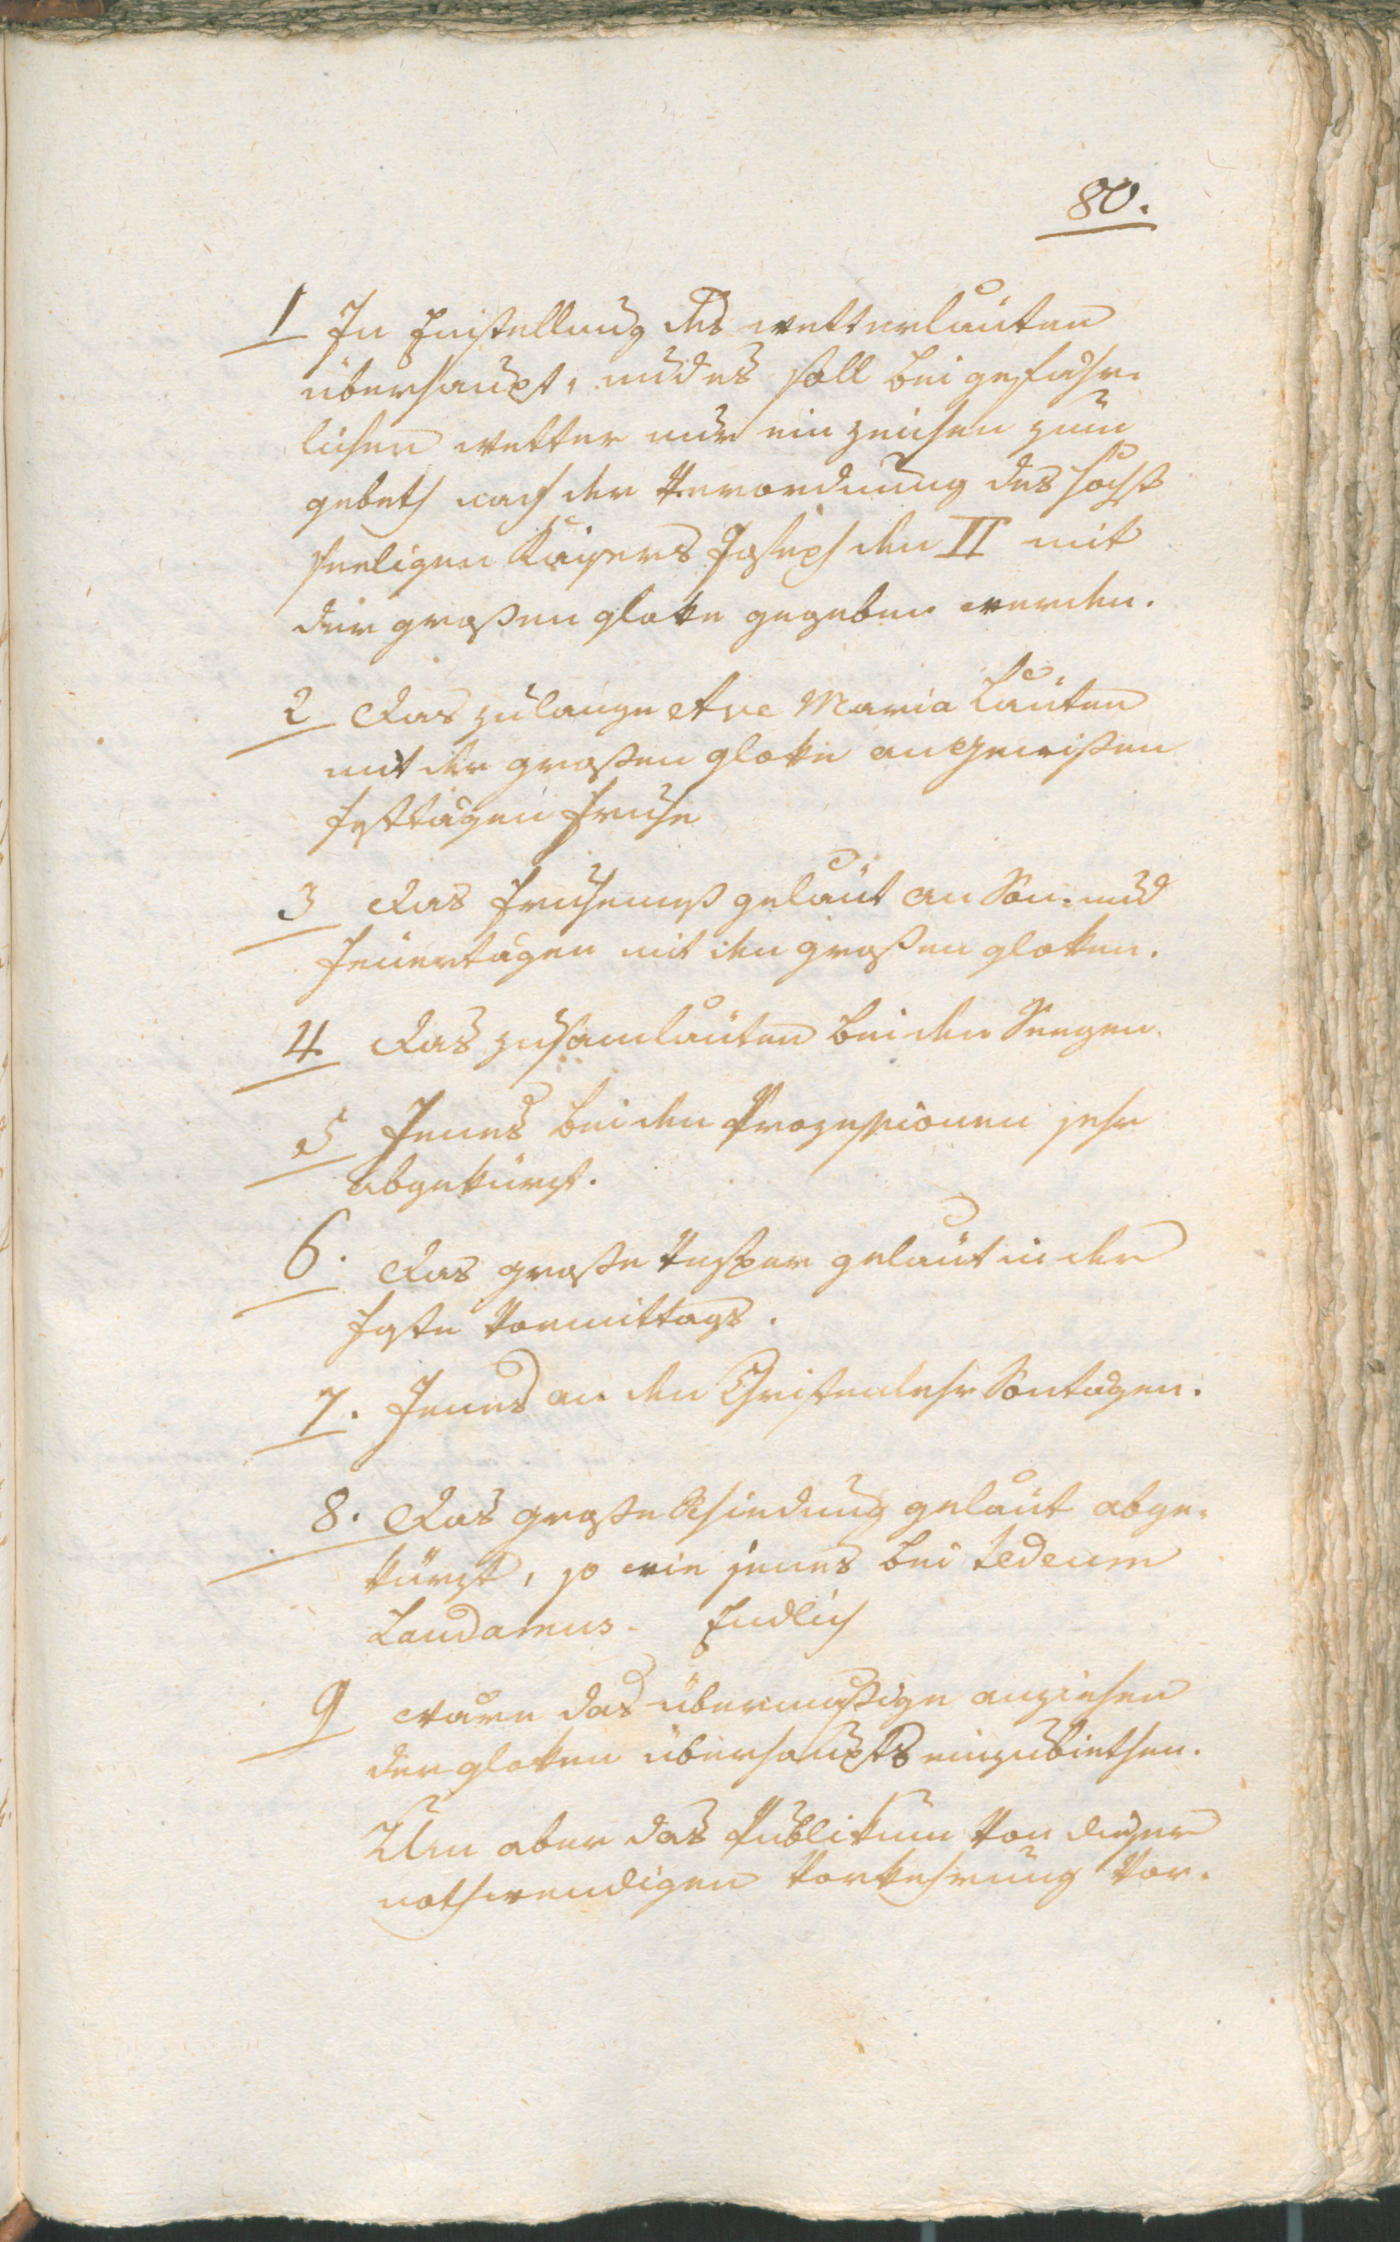 80.
1 In Einstellung des wetterlaüten
überhaupt, und es soll bei gefähr-
lichen wetter nur ein zeichen zum
gebeth nach der Verordnung des höchst
seeligen Kaisers Joseph den II mit
der großen gloke gegeben werden.
2 Das zulange Ave Maria Laüten
mit der großen gloke an gewißen
festtägen Fruhe
3 Das Fruhemeß gelaüt an Son- und
Feuertägen mit den großen gloken.
4. Das zusamlaüten bei den Seegen.
5 Jenes bei den Prozessionen sehr
abgekürzt.
6. Das große Vesper gelaüt in der
feste Vormittags.
7. Jenes an den Christenlehr Sontägen.
8. Das große Schiedung gelaüt abge-
kürzt, so wie jenes bei Tedeum
Laudamus. Endlich
9 wäre das übermäßige anziehen
der gloken überhaupts einzubiethen.
Um aber das Publikum von dieser
nothwendigen Vorkehrung vor-